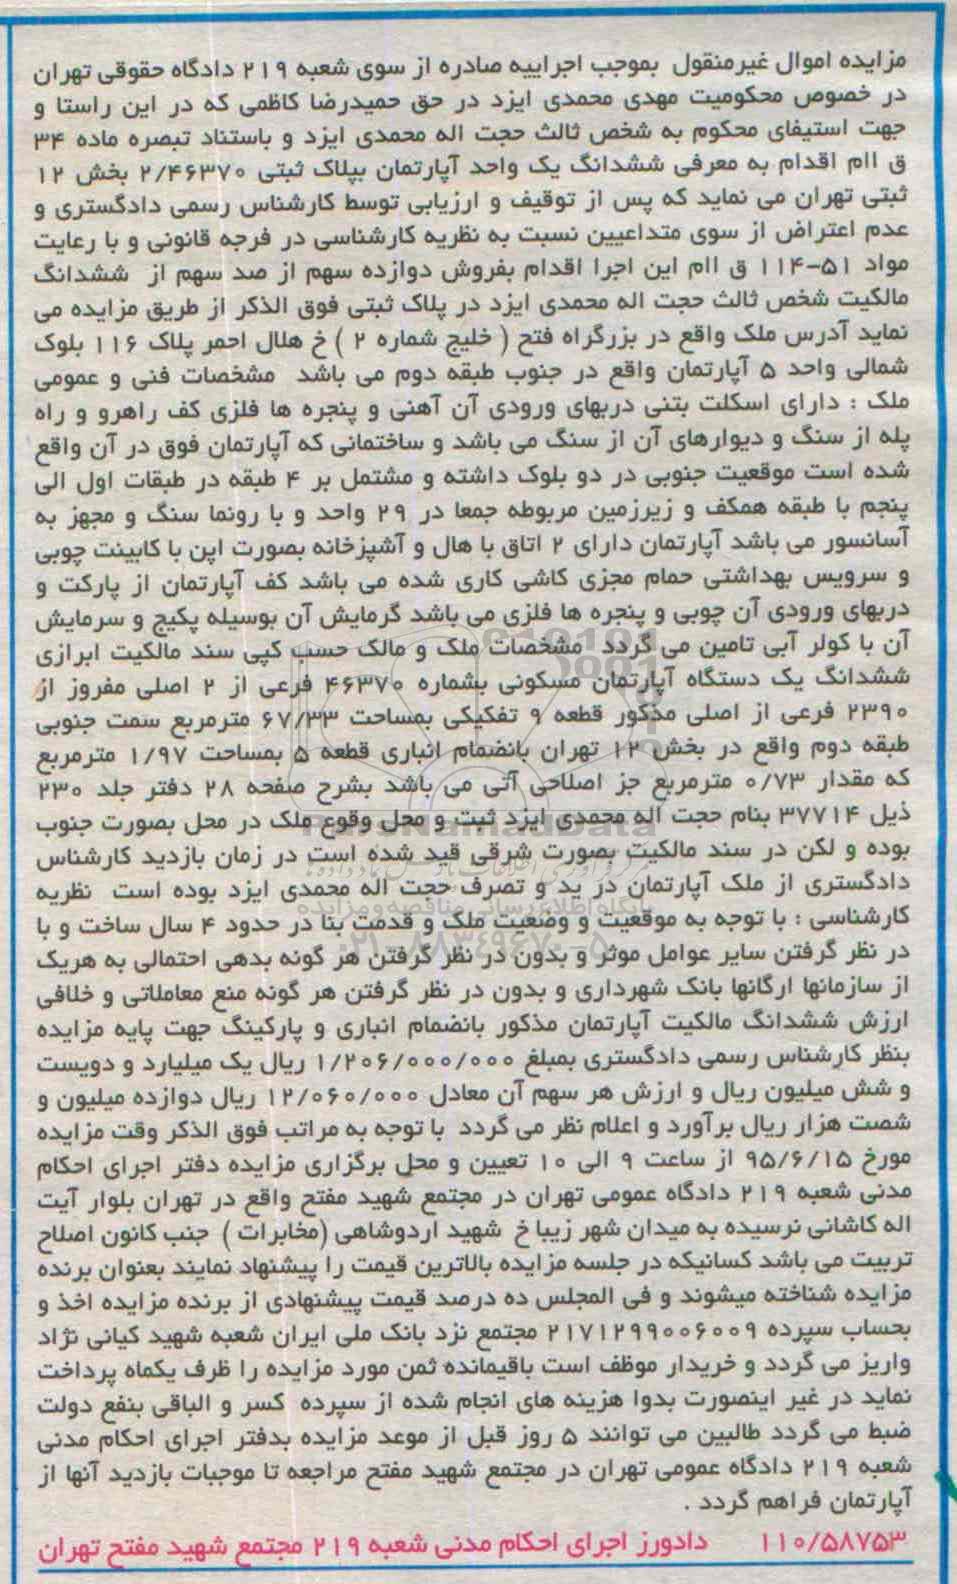 مزایده اموال غیرمنقول بموجب اجراییه صادره از سوی شعبه ۲۱۹ دادگاه حقوقی تهران
در خصوص محکومیت مهدی محمدی ایزد در حق حمیدرضا کاظمی که در این راستا و
جهت استیفای محکوم به شخص ثالث حجت اله محمدی ایزد و باستناد تبصره ماده ۳۴
ق اام اقدام به معرفی ششدانگ یک واحد آپارتمان بپلاک ثبتی ۲/۴۶۳۷۰ بخش ۱۲
ثبتی تهران می نماید که پس از توقیف و ارزیابی توسط کارشناس رسمی دادگستری و
عدم اعتراض از سوی متداعیین نسبت به نظریه کارشناسی در فرجه قانونی و با رعایت
مواد ۵۱-۱۱۴ ق اام این اجرا اقدام بفروش دوازده سهم از صد سهم از ششدانگ
مالکیت شخص ثالث حجت اله محمدی ایزد در پلاک ثبتی فوق الذکر از طریق مزایده می
نماید آدرس ملک واقع در بزرگراه فتح ( خلیج شماره ۲ ) خ هلال احمر پلاک ۱۱۶ بلوک
شمالی واحد ۵ آپارتمان واقع در جنوب طبقه دوم می باشد مشخصات فنی و عمومی
ملک : دارای اسکلت بتنی دربهای ورودی آن آهنی و پنجره ها فلزی کف راهرو و راه
پله از سنگ و دیوارهای آن از سنگ می باشد و ساختمانی که آپارتمان فوق در آن واقع
شده است موقعیت جنوبی در دو بلوک داشته و مشتمل بر ۴ طبقه در طبقات اول الی
پنجم با طبقه همکف و زیرزمین مربوطه جمعا در ۲۹ واحد و با رونما سنگ و مجهز به
آسانسور می باشد آپارتمان دارای ۲ اتاق با هال و آشپزخانه بصورت اپن با کابینت چوبی
و سرویس بهداشتی حمام مجزی کاشی کاری شده می باشد کف آپارتمان از پارکت و
دربهای ورودی آن چوبی و پنجره ها فلزی می باشد گرمایش آن بوسیله پکیج و سرمایش
آن با کولر آبی تامین می گردد مشخصات ملک و مالک حسب کپی سند مالکیت ابرازی
ششدانگ یک دستگاه آپارتمان مسکونی بشماره ۴۶۳۷۰ فرعی از ۲ اصلی مفروز از
۲۳۹۰ فرعی از اصلی مذکور قطعه ۹ تفکیکی بمساحت ۶۷/۳۳ مترمربع سمت جنوبی
طبقه دوم واقع در بخش ۱۲ تهران بانضمام انباری قطعه ۵ بمساحت ۱/۹۷ مترمربع
که مقدار ۰/۷۳ مترمربع جز اصلاحی آتی می باشد بشرح صفحه ۲۸ دفتر جلد ۲۳۰
ذیل ۳۷۷۱۴ بنام حجت اله محمدی ایزد ثبت و محل وقوع ملک در محل بصورت جنوب
بوده و لکن در سند مالکیت بصورت شرقی قید شده است در زمان بازدید کارشناس
دادگستری از ملک آپارتمان در ید و تصرف حجت اله محمدی ایزد بوده است نظریه
کارشناسی : با توجه به موقعیت و وضعیت ملک و قدمت بنا در حدود ۴ سال ساخت و با
در نظر گرفتن سایر عوامل موثر و بدون در نظر گرفتن هر گونه بدهی احتمالی به هریک
از سازمانها ارگانها بانک شهرداری و بدون در نظر گرفتن هر گونه منع معاملاتی و خلافی
ارزش ششدانگ مالکیت آپارتمان مذکور بانضمام انباری و پارکینگ جهت پایه مزایده
بنظر کارشناس رسمی دادگستری بمبلغ ۱/۲۰۶/۰۰۰/۰۰۰ ریال یک میلیارد و دویست
و شش میلیون ریال و ارزش هر سهم آن معادل ۱۲/۰۶۰/۰۰۰ ریال دوازده میلیون و
شصت هزار ریال برآورد و اعلام نظر می گردد با توجه به مراتب فوق الذکر وقت مزایده
مورخ ۹۵/۶/۱۵ از ساعت ۹ الی ۱۰ تعیین و محل برگزاری مزایده دفتر اجرای احکام
مدنی شعبه ۲۱۹ دادگاه عمومی تهران در مجتمع شهید مفتح واقع در تهران بلوار آیت
اله کاشانی نرسیده به میدان شهر زیبا خ شهید اردوشاهی (مخابرات ) جنب کانون اصلاح
تربیت می باشد کسانیکه در جلسه مزایده بالاترین قیمت را پیشنهاد نمایند بعنوان برنده
مزایده شناخته میشوند و فی المجلس ده درصد قیمت پیشنهادی از برنده مزایده اخذ و
بحساب سپرده ۲۱۷۱۲۹۹۰۰۶۰۰۹ مجتمع نزد بانک ملی ایران شعبه شهید کیانی نژاد
واریز می گردد و خریدار موظف است باقیمانده ثمن مورد مزایده را ظرف یکماه پرداخت
نماید در غیر اینصورت بدوا هزینه های انجام شده از سپرده کسر و الباقی بنفع دولت
ضبط می گردد طالبین می توانند ۵ روز قبل از موعد مزایده بدفتر اجرای احکام مدنی
شعبه ۲۱۹ دادگاه عمومی تهران در مجتمع شهید مفتح مراجعه تا موجبات بازدید آنها از
آپارتمان فراهم گردد .
۱۱۰/۵۸۷۵۳ دادورز اجرای احکام مدنی شعبه ۲۱۹ مجتمع شهید مفتح تهران
ParsNamadData
پایگاه اطلاع رسانی مناقصه و مزایده
۰۲۱-۸۸۳۴۹۶۷۰-۵